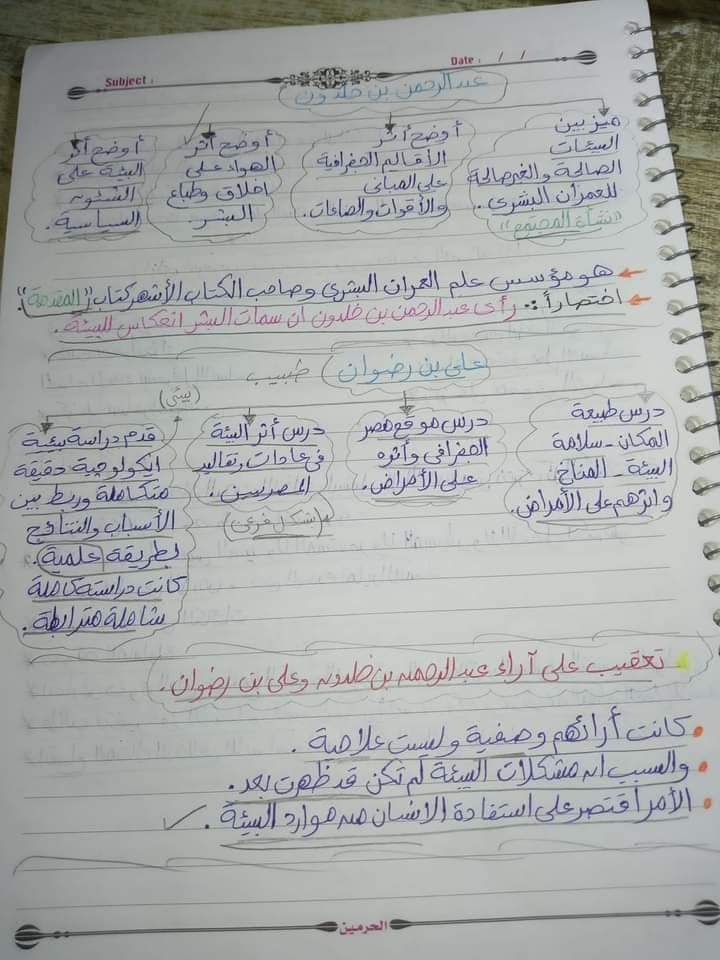 Subject :
Date : / /
عبدالرحمن بن خلدون
ميز بين
البيئات
الصالحة والغير صالحة
للعمران البشرى.
"نشأة المجتمع"
أوضح أثر
الأقاليم الجغرافية
على المبانى
والأقوات والصناعات.
أوضح أثر
الهواء على
اخلاق وطباع
البشر
أوضح أثر
البيئة على
الشئون
السياسية.
هو مؤسس علم العمران البشرى وصاحب الكتاب الأشهر كتاب "المقدمة".
اختصاراً :. رأى عبدالرحمن بن خلدون ان سمات البشر انعكاس للبيئة.
على بن رضوان طبيب
(بيئى)
درس طبيعة
المكان - سلامة
البيئة - المناخ
واثرهم على الأمراض.
درس موقع مصر
الجغرافى وأثره
على الأمراض.
درس أثر البيئة
فى عادات وتقاليد
المصريين.
(بشكل فرعى)
قدم دراسة بيئية
ايكولوجية دقيقة
متكاملة وربط بين
الأسباب والنتائج
بطريقة علمية.
كانت دراسة كاملة
شاملة مترابطة.
تعقيب على آراء عبدالرحمن بن خلدون وعلى بن رضوان.
كانت أرائهم وصفية وليست علاجية.
والسبب ان مشكلات البيئة لم تكن قد ظهرت بعد.
الأمر اقتصر على استفادة الانسان من موارد البيئة.
الحرمين